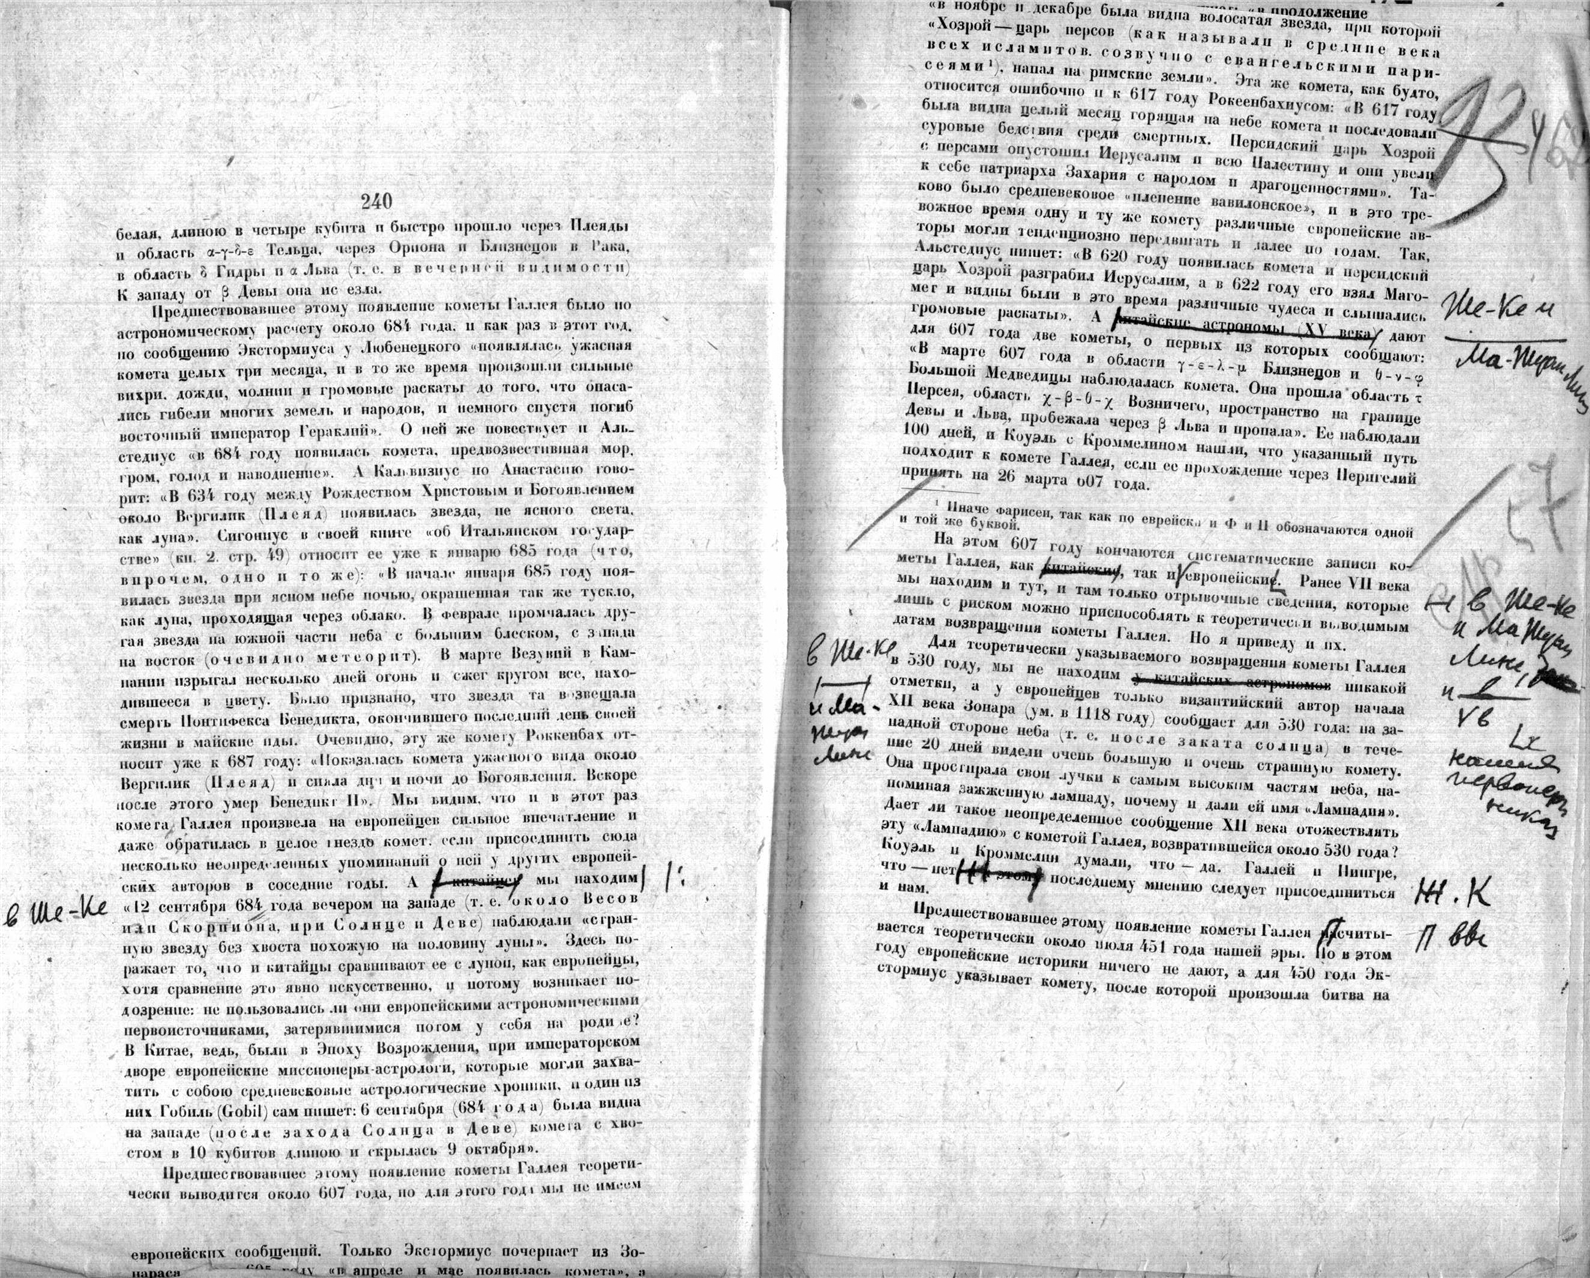 240
белая, длиною в четыре кубита и быстро прошло через Плеяды
и область α-γ-δ-ε Тельца, через Ориона и Близнецов в Рака,
в область δ Гидры и α Льва (т. е. в вечерней видимости)
К западу от β Девы она исчезла.
Предшествовавшее этому появление кометы Галлея было по
астрономическому расчету около 684 года, и как раз в этот год,
по сообщению Экстормиуса у Любенецкого «появлялась ужасная
комета целых три месяца, и в то же время произошли сильные
вихри, дожди, молнии и громовые раскаты до того, что опаса-
лись гибели многих земель и народов, и немного спустя погиб
восточный император Гераклий». О ней же повествует и Аль-
стедиус «в 684 году появилась комета, предвозвестившая мор,
гром, голод и наводнение». А Кальвизиус по Анастасию гово-
рит: «В 634 году между Рождеством Христовым и Богоявлением
около Вергилик (Плеяд) появилась звезда, не ясного света,
как луна». Сигониус в своей книге «об Итальянском государ-
стве» (кн. 2. стр. 49) относит ее уже к январю 685 года (что,
впрочем, одно и то же): «В начале января 685 году поя-
вилась звезда при ясном небе ночью, окрашенная так же тускло,
как луна, проходящая через облако. В феврале промчалась дру-
гая звезда на южной части неба с большим блеском, с запада
на восток (очевидно метеорит). В марте Везувий в Кам-
пании изрыгал несколько дней огонь и сжег кругом все, нахо-
дившееся в цвету. Было признано, что звезда та возвещала
смерть Понтифекса Бенедикта, окончившего последний день своей
жизни в майские иды. Очевидно, эту же комету Роккенбах от-
носит уже к 687 году: «Показалась комета ужасного вида около
Вергилик (Плеяд) и сияла дни и ночи до Богоявления. Вскоре
после этого умер Бенедикт II». Мы видим, что и в этот раз
комета Галлея произвела на европейцев сильное впечатление и
даже обратилась в целое гнездо комет, если присоединить сюда
несколько неопределенных упоминаний о ней у других европей-
ских авторов в соседние годы. А у китайцев мы находим :
в Ше-Ке
«12 сентября 684 года вечером на западе (т. е. около Весов
или Скорпиона, при Солнце и Деве) наблюдали «стран-
ную звезду без хвоста похожую на половину луны». Здесь по-
ражает то, что и китайцы сравнивают ее с луной, как европейцы,
хотя сравнение это явно искусственно, и потому возникает по-
дозрение: не пользовались ли они европейскими астрономическими
первоисточниками, затерявшимися потом у себя на родине?
В Китае, ведь, были в Эпоху Возрождения, при императорском
дворе европейские миссионеры-астрологи, которые могли захва-
тить с собою средневековые астрологические хроники, и один из
них Гобиль (Gobil) сам пишет: 6 сентября (684 года) была видна
на западе (после захода Солнца в Деве) комета с хво-
стом в 10 кубитов длиною и скрылась 9 октября».
Предшествовавшее этому появление кометы Галлея теорети-
чески выводится около 607 года, но для этого года мы не имеем
европейских сообщений. Только Экстормиус почерпает из Зо-
нараса 605 году «в апреле и мае появилась комета», а
«в продолжение
«в ноябре и декабре была видна волосатая звезда, при которой
«Хозрой — царь персов (как называли в средние века
всех исламитов, созвучно с евангельскими пари-
сеями¹), напал на римские земли». Эта же комета, как будто,
относится ошибочно и к 617 году Рокеенбахиусом: «В 617 году
была видна целый месяц горящая на небе комета и последовали
суровые бедствия среди смертных. Персидский царь Хозрой
с персами опустошил Иерусалим и всю Палестину и они увели
к себе патриарха Захария с народом и драгоценностями». Та-
ково было средневековое «пленение вавилонское», и в это тре-
вожное время одну и ту же комету различные европейские ав-
торы могли тенденциозно передвигать и далее по годам. Так,
Альстедиус пишет: «В 620 году появилась комета и персидский
царь Хозрой разграбил Иерусалим, а в 622 году его взял Маго-
мет и видны были в это время различные чудеса и слышались
громовые раскаты». А китайские астрономы (XV века) дают
Ше-Ке и
Ма-Туан Лин
для 607 года две кометы, о первых из которых сообщают:
«В марте 607 года в области γ-ε-λ-μ Близнецов и θ-ν-φ
Большой Медведицы наблюдалась комета. Она прошла область τ
Персея, область χ-β-θ-χ Возничего, пространство на границе
Девы и Льва, пробежала через β Льва и пропала». Ее наблюдали
100 дней, и Коуэль с Кроммелином нашли, что указанный путь
подходит к комете Галлея, если ее прохождение через Перигелий
принять на 26 марта 607 года.
¹ Иначе фарисеи, так как по еврейски и Ф и П обозначаются одной
и той же буквой.
57
На этом 607 году кончаются систематические записи ко-
меты Галлея, как китайские, так и европейские. Ранее VII века
мы находим и тут, и там только отрывочные сведения, которые
лишь с риском можно приспособлять к теоретически выводимым
датам возвращения кометы Галлея. Но я приведу и их.
в Ше-Ке
и Ма Туан
Лине,
Для теоретически указываемого возвращения кометы Галлея
в 530 году, мы не находим у китайских астрономов никакой
в Ше-Ке
и Ма-
Туан
Лине
отметки, а у европейцев только византийский автор начала
XII века Зонара (ум. в 1118 году) сообщает для 530 года: на за-
падной стороне неба (т. е. после заката солнца) в тече-
ние 20 дней видели очень большую и очень страшную комету.
Она простирала свои лучки к самым высоким частям неба, на-
поминая зажженную лампаду, почему и дали ей имя «Лампадия».
Дает ли такое неопределенное сообщение XII века отожествлять
эту «Лампадию» с кометой Галлея, возвратившейся около 530 года?
Коуэль и Кроммелин думали, что — да. Галлей и Пингре,
что — нет. К этому последнему мнению следует присоединиться
и нам.
Ж. К
Предшествовавшее этому появление кометы Галлея насчиты-
П вы
вается теоретически около июля 451 года нашей эры. Но в этом
году европейские историки ничего не дают, а для 450 года Эк-
стормиус указывает комету, после которой произошла битва на